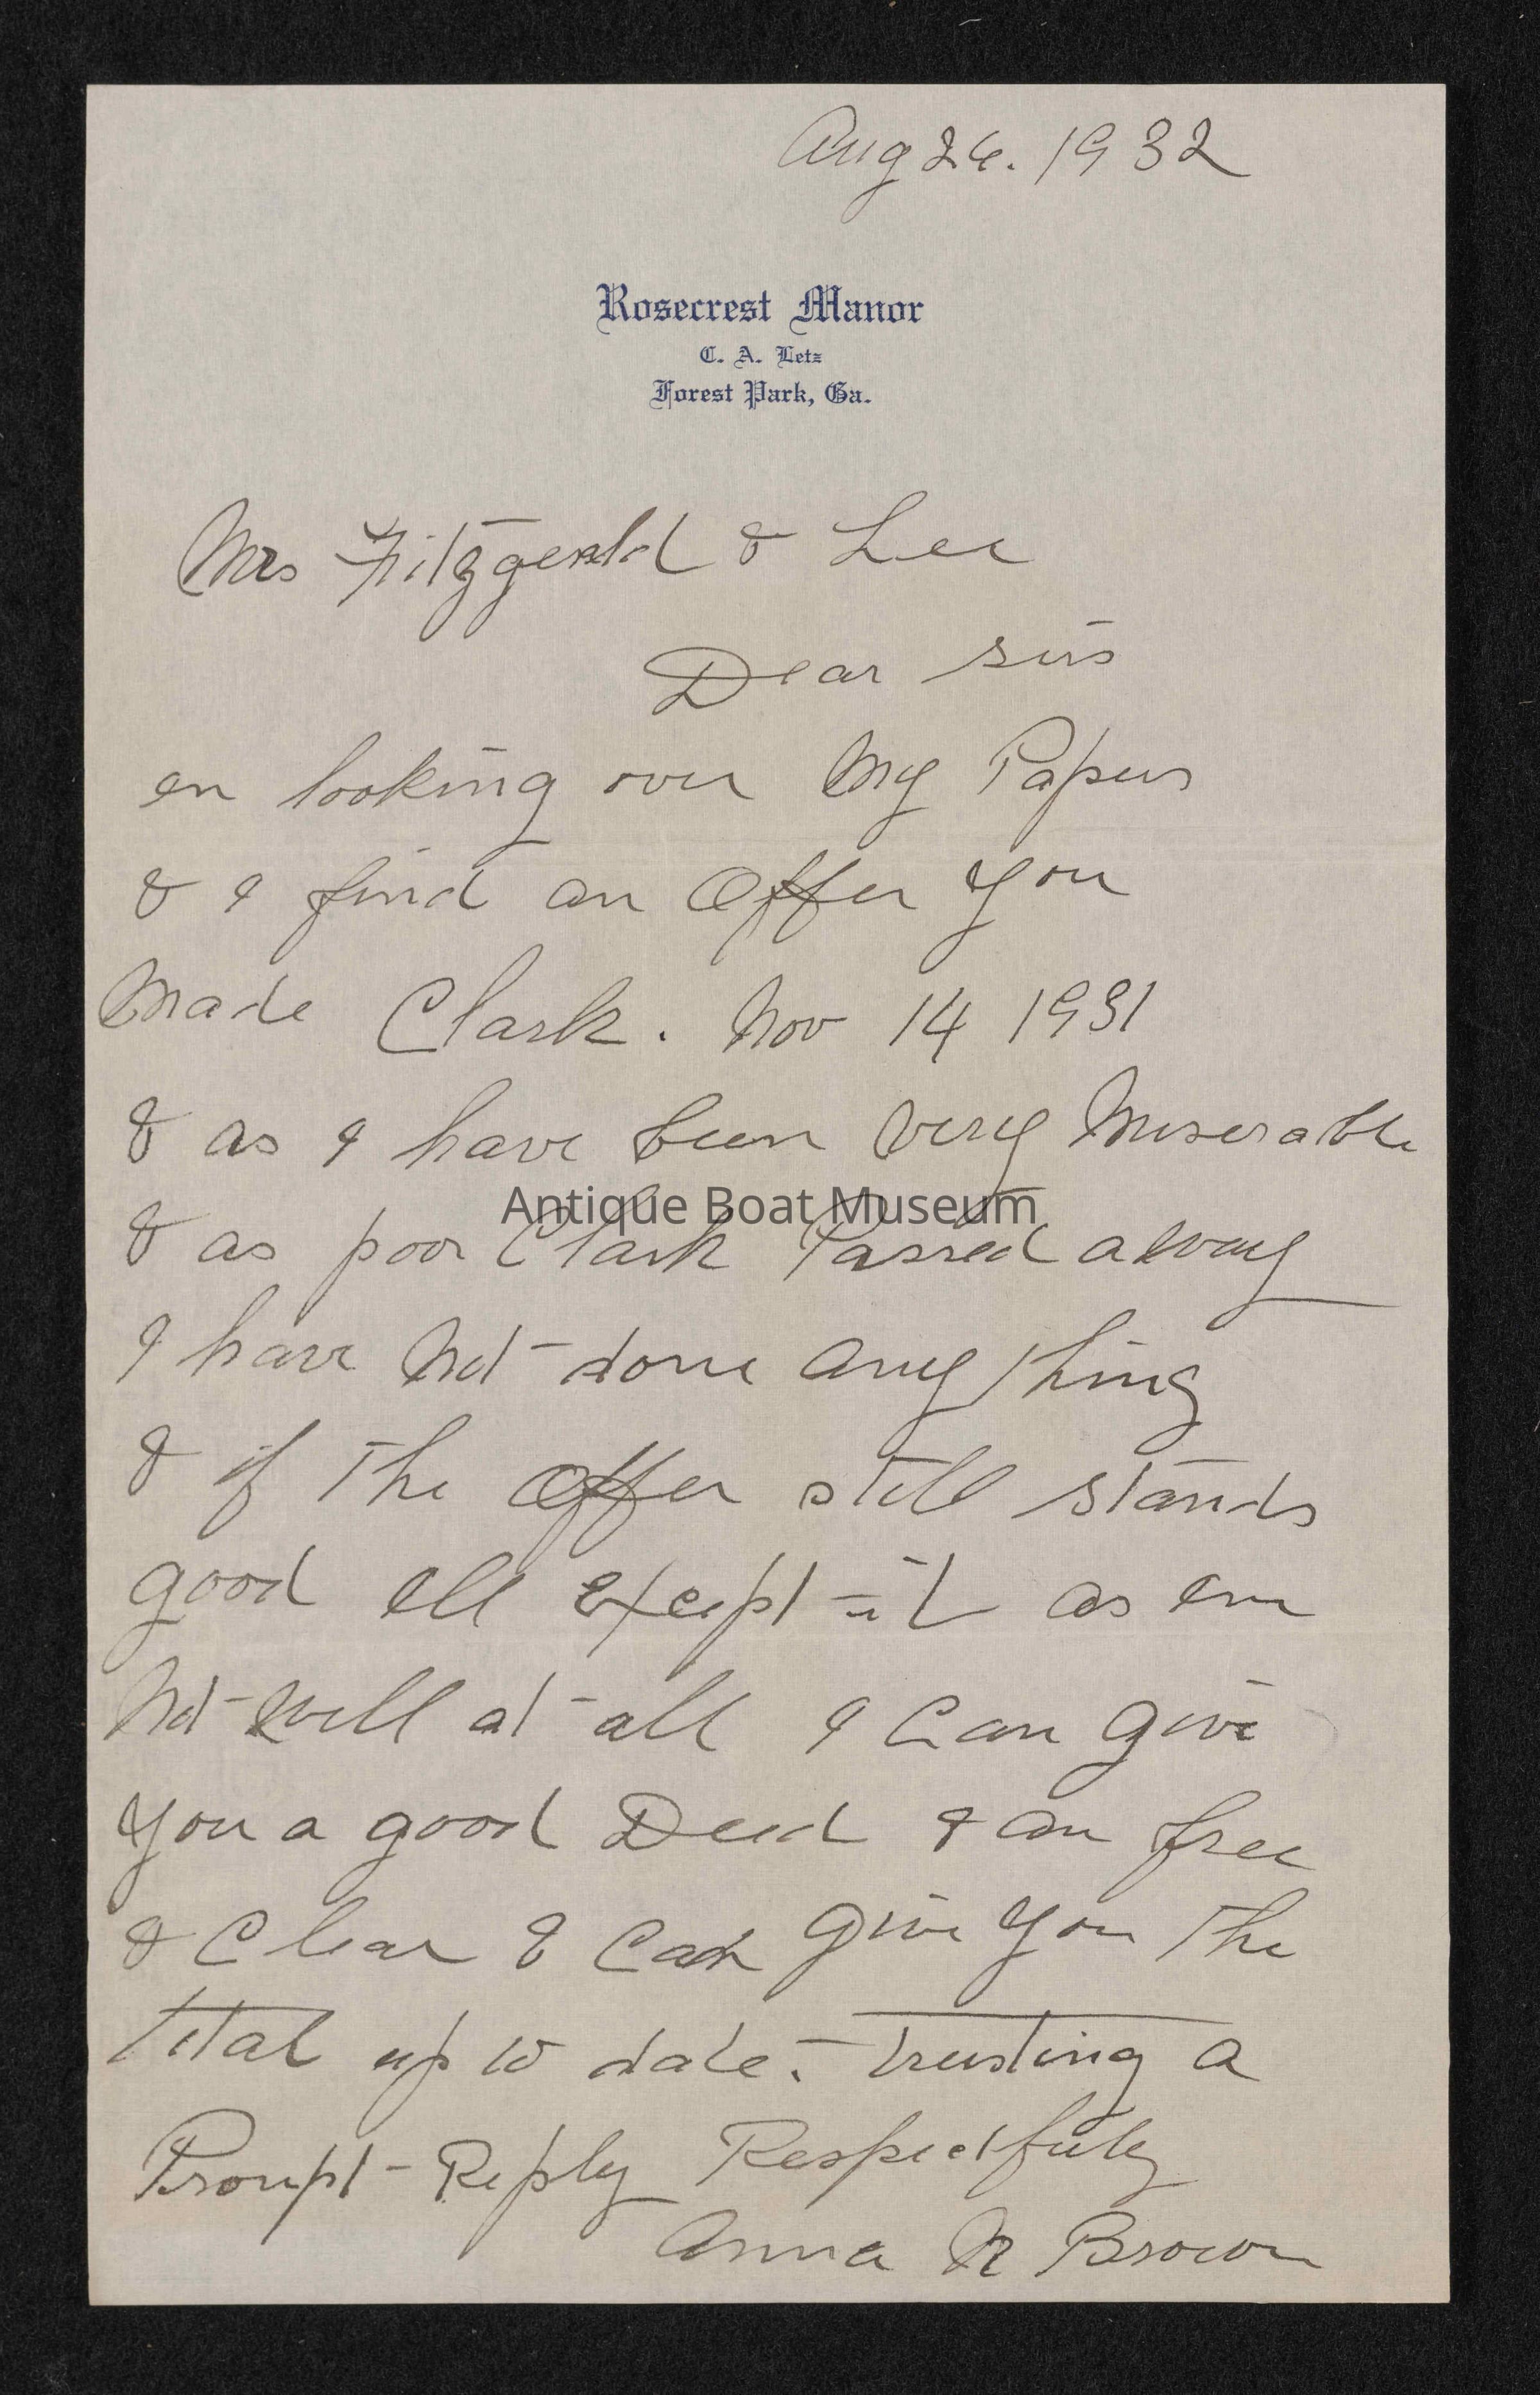 Aug 26. 1932
Rosecrest Manor
C. A. Letz
Forest Park, Ga.
Mrs Fitzgerald & Lee
Dear sirs
en looking over My Papers
& I find an Offer you
Made Clark. Nov 14 1931
& as I have been very Miserable
Antique Boat Museum
& as poor Clark Passed away
I have Not done any thing
& if the Offer still stands
good ell except it as em
Not well at all I can give
you a good Deed & am free
& Clear & Can give you the
tital up to date. Trusting a
Prompt Reply Respectfuly
Anna N Brown